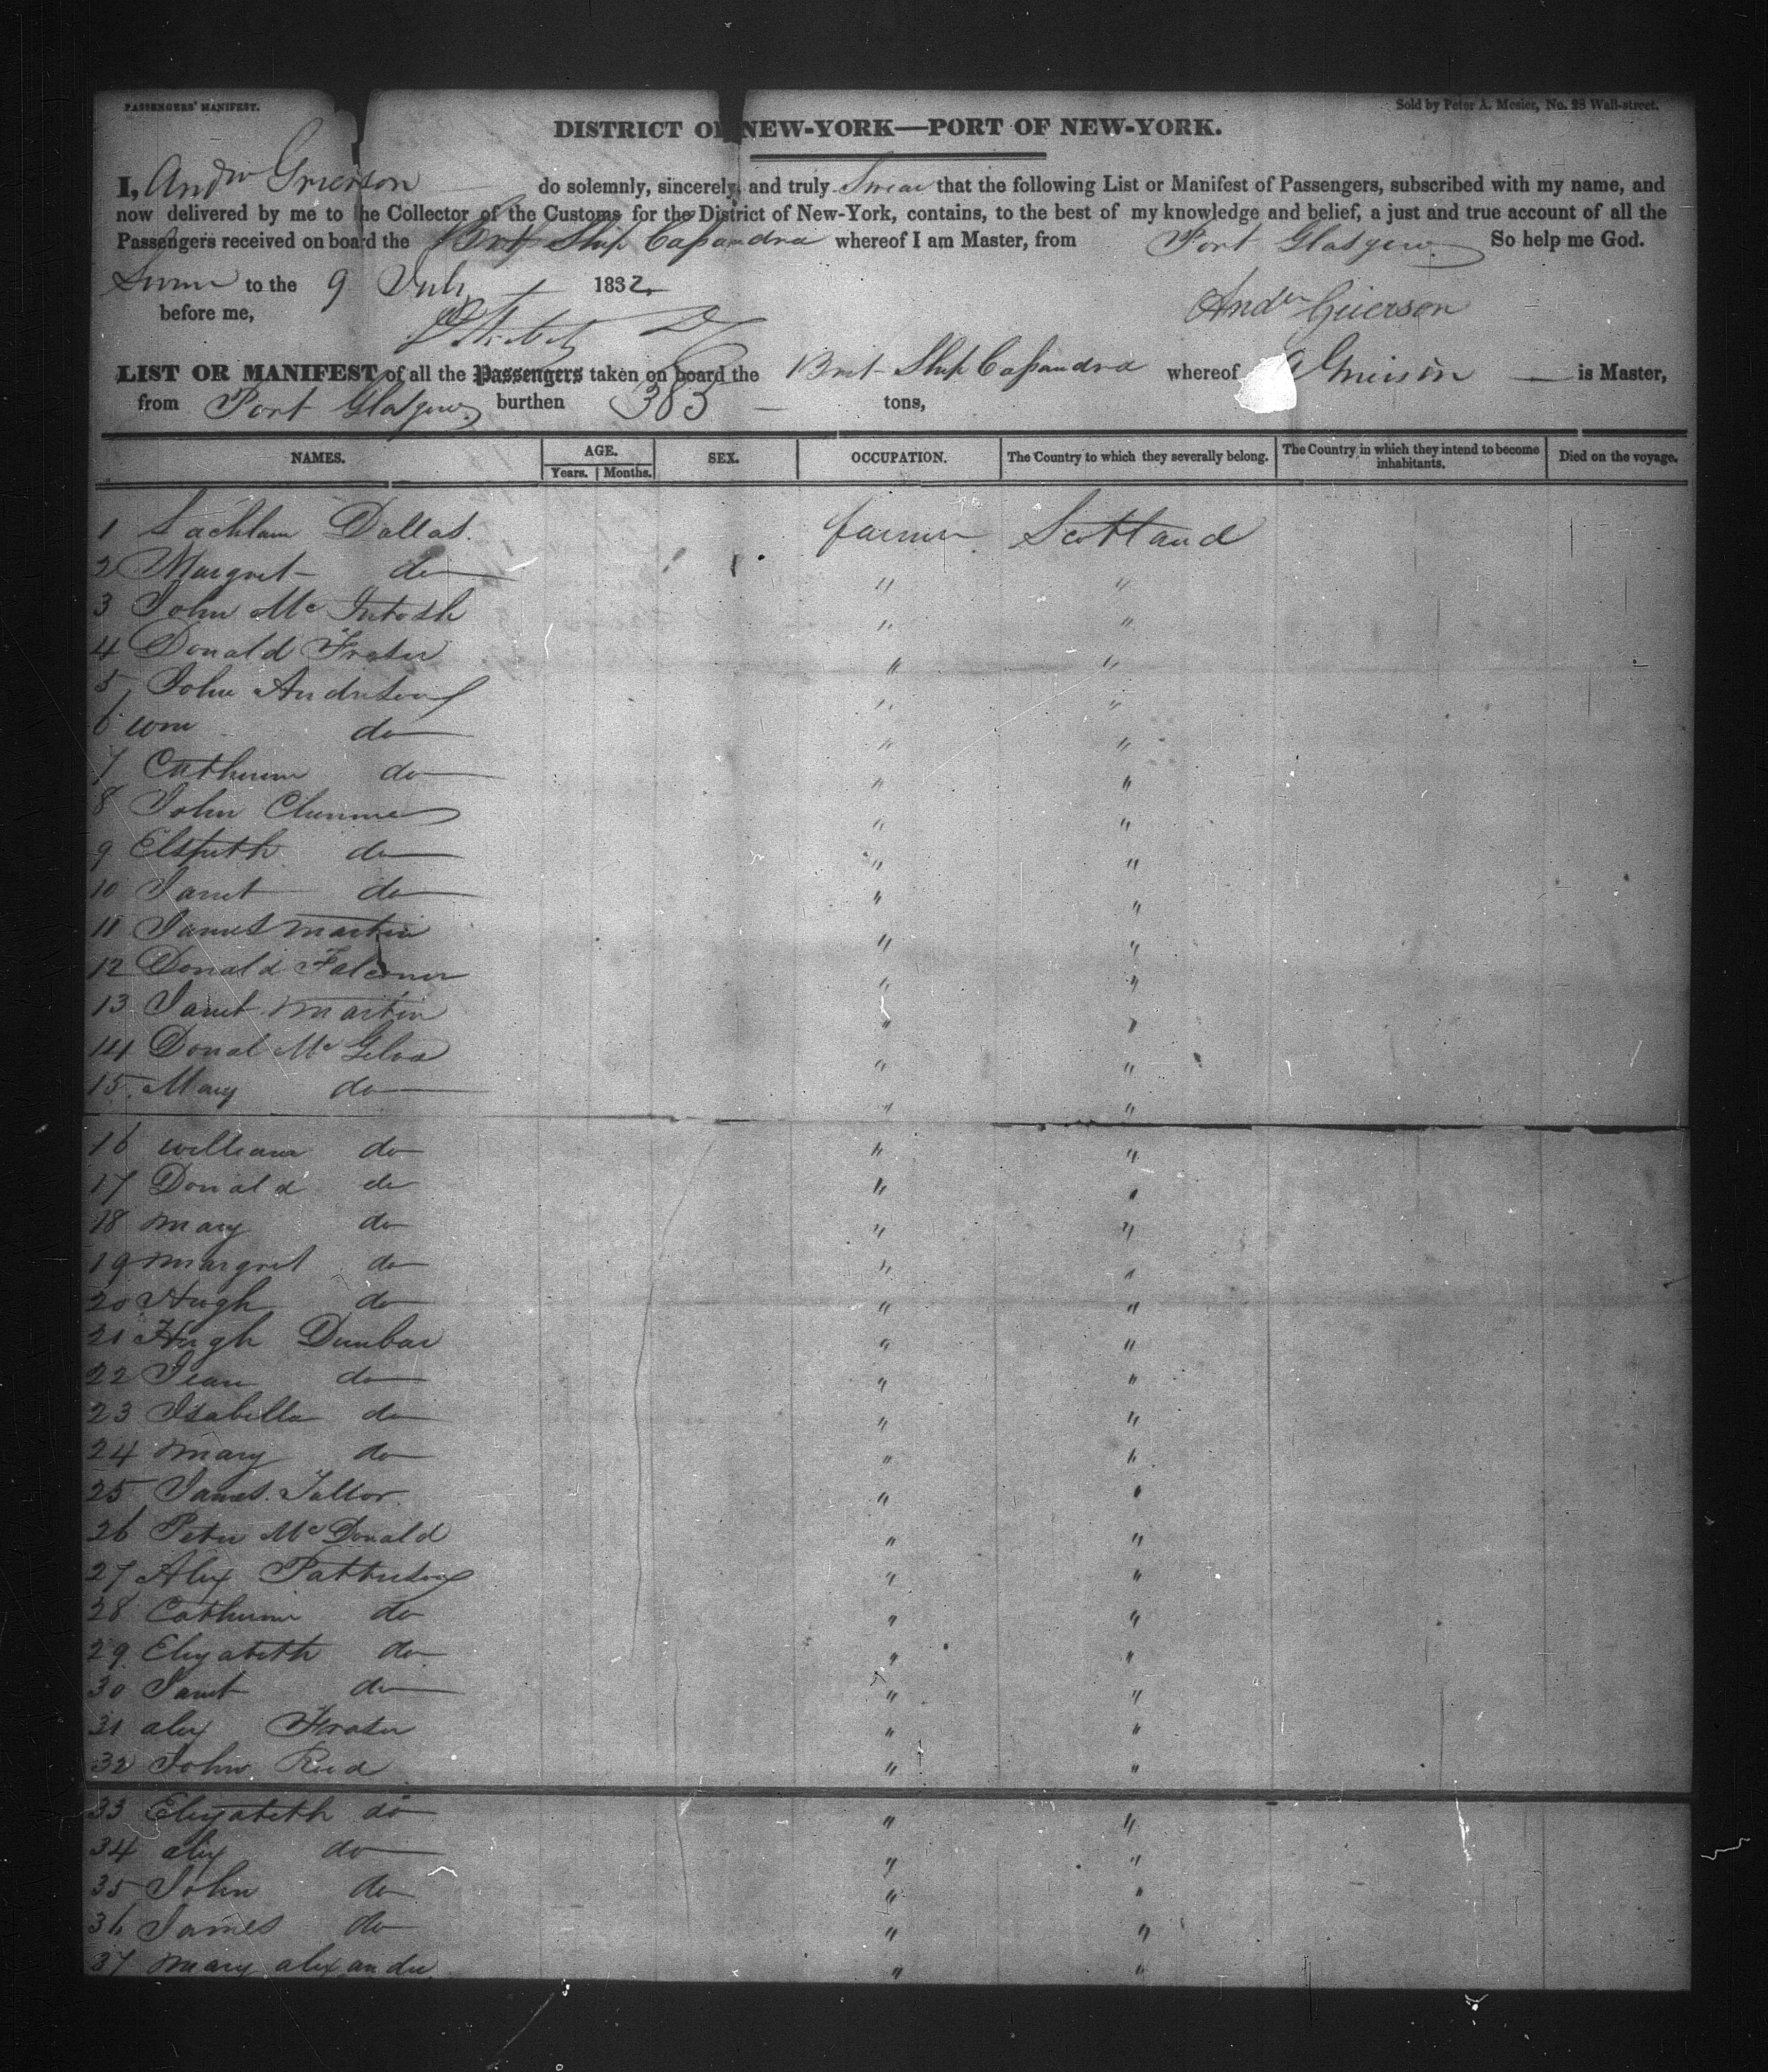 PASSENGERS' MANIFEST.
Sold by Peter A. Mesier, No. 28 Wall-street.
DISTRICT OF NEW-YORK—PORT OF NEW-YORK.
I, Andw Grierson do solemnly, sincerely, and truly Swear that the following List or Manifest of Passengers, subscribed with my name, and
now delivered by me to the Collector of the Customs for the District of New-York, contains, to the best of my knowledge and belief, a just and true account of all the
Passengers received on board the Brit Ship Cassandra whereof I am Master, from Port Glasgow So help me God.
Sworn to the 9 July 1832
before me,
Andw Grierson
LIST OR MANIFEST of all the Passengers taken on board the Brit Ship Cassandra whereof A Grierson is Master,
from Port Glasgow burthen 383 tons,
NAMES. AGE. SEX. OCCUPATION. The Country to which they severally belong. The Country in which they intend to become inhabitants. Died on the voyage.
Years. Months.
1 Lachlan Dallas. farmer Scotland
2 Margret do " "
3 John Mc Intosh " "
4 Donald Fraser " "
5 John Anderson " "
6 Wm do " "
7 Catherine do " "
8 John Clunnes " "
9 Elspeth do " "
10 Janet do " "
11 James Martin " "
12 Donald Falconer " "
13 Janet Martin " "
14 Donal Mc Gilva " "
15 Mary do " "
16 William do " "
17 Donald do " "
18 Mary do " "
19 Margret do " "
20 Hugh do " "
21 Hugh Dunbar " "
22 Jean do " "
23 Isabella do " "
24 Mary do " "
25 James " "
26 Peter Mc Donald " "
27 Alex Patterson " "
28 Catherine do " "
29 Elizabeth do " "
30 Janet do " "
31 alex Fraser " "
32 John Reed " "
33 Elizabeth do " "
34 alex do " "
35 John do " "
36 James do " "
37 Mary alexander " "